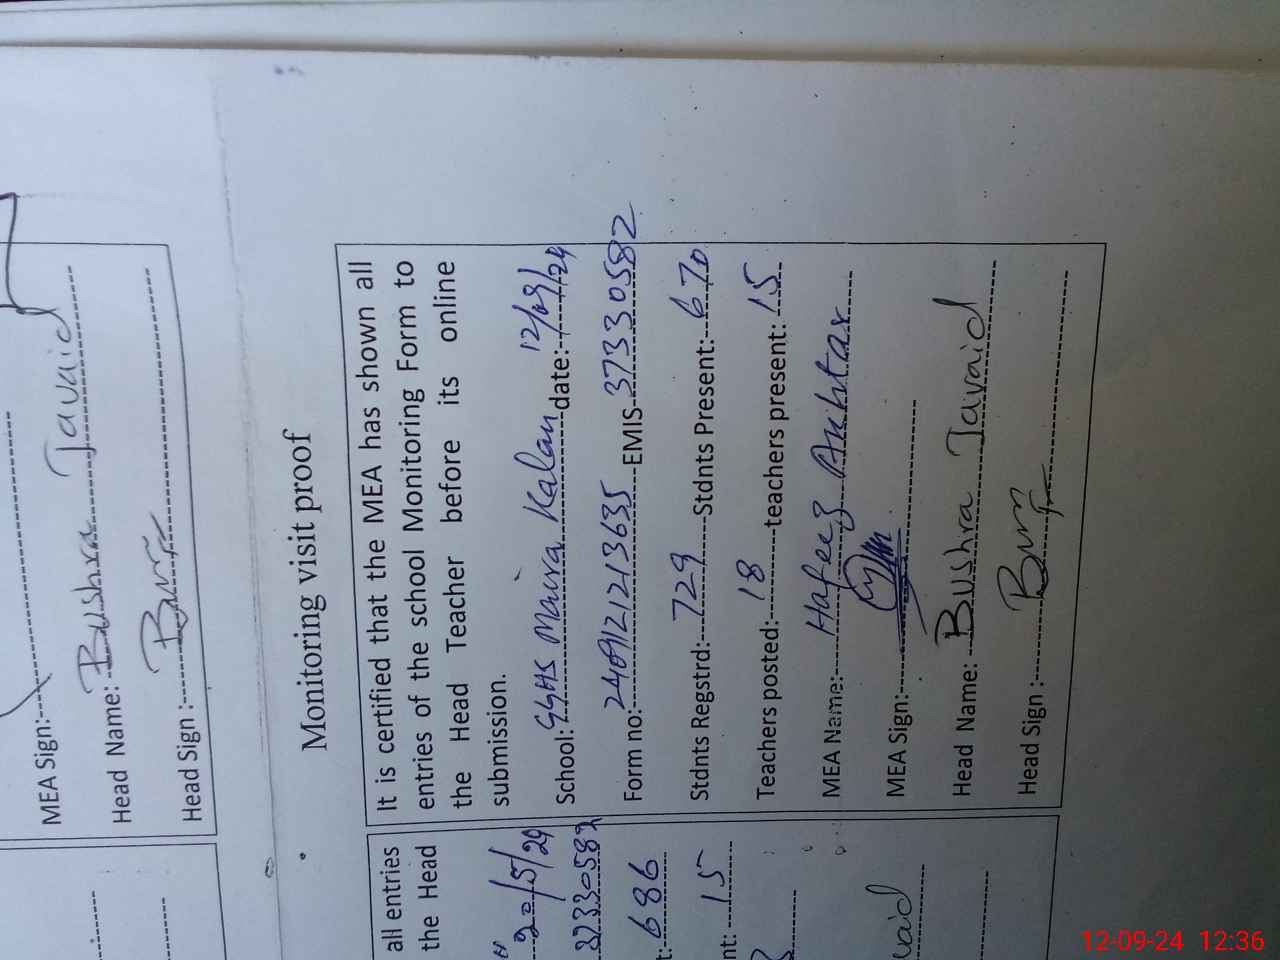 MEA Sign:
Head Name: Bushra Javaid
Head Sign :
Monitoring visit proof
It is certified that the MEA has shown all
entries of the school Monitoring Form to
the Head Teacher before its online
submission.
School: GGHS Maira Kalan date: 12/09/24
Form no: EMIS 37330582
Stdnts Regstrd: 729 Stdnts Present: 670
Teachers posted: 18 teachers present: 15
MEA Name: Hafeez Akhtar
MEA Sign:
Head Name: Bushra Javaid
Head Sign :
all entries
the Head
20/5/24
37330582
t: 686
nt: 15
vaid
12-09-24 12:36